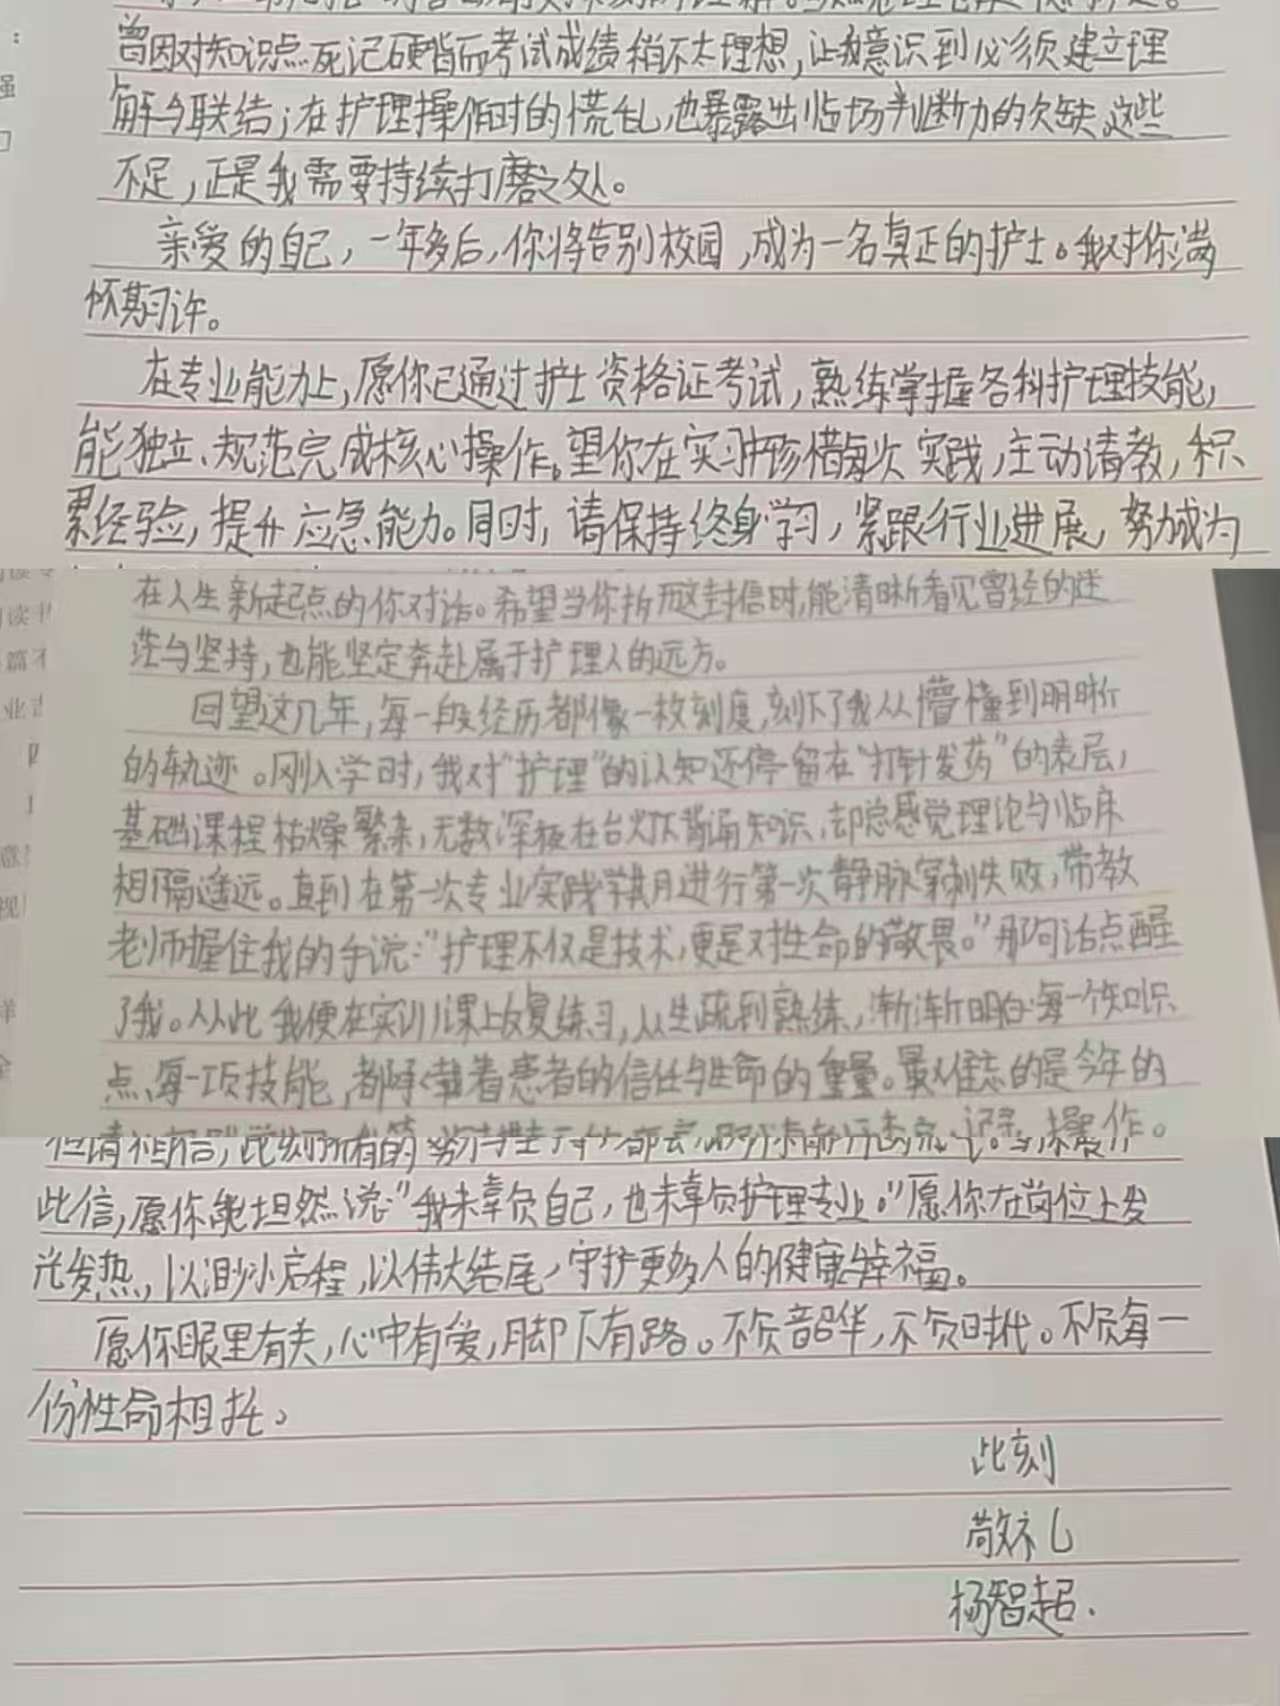 曾因对知识点死记硬背而考试成绩稍不太理想,让我意识到必须建立理
解与联结;在护理操作时的慌乱,也暴露出临场判断力的欠缺,这些
不足,正是我需要持续打磨之处。
亲爱的自己,一年多后,你将告别校园,成为一名真正的护士。我对你满
怀期许。
在专业能力上,愿你已通过护士资格证考试,熟练掌握各科护理技能,
能独立、规范完成核心操作。望你在实习中珍惜每次实践,主动请教,积
累经验,提升应急能力。同时,请保持终身学习,紧跟行业进展,努力成为
在人生新起点的你对话。希望当你拆开这封信时,能清晰看见曾经的迷
茫与坚持,也能坚定奔赴属于护理人的远方。
回望这几年,每一段经历都像一枚刻度,刻下了我从懵懂到明晰
的轨迹。刚入学时,我对“护理”的认知还停留在“打针发药”的表层,
基础课程枯燥繁杂,无数深夜在台灯下背诵知识,却总感觉理论与临床
相隔遥远。直到在第一次专业实践学期月进行第一次静脉穿刺失败,带教
老师握住我的手说:“护理不仅是技术,更是对生命的敬畏。”那句话点醒
了我。从此我便在实训课上反复练习,从生疏到熟练,渐渐明白每一个知识
点、每一项技能,都承载着患者的信任与生命的重量。最难忘的是今年的
操作。
但请相信,此刻所有的努力
此信,愿你能坦然说:“我未辜负自己,也未辜负护理专业。”愿你在岗位上发
光发热,以渺小启程,以伟大结尾,守护更多人的健康与幸福。
愿你眼里有关,心中有爱,脚下有路。不负韶华,不负时代。不负每一
份性命相托。
此刻
敬礼
杨智超.